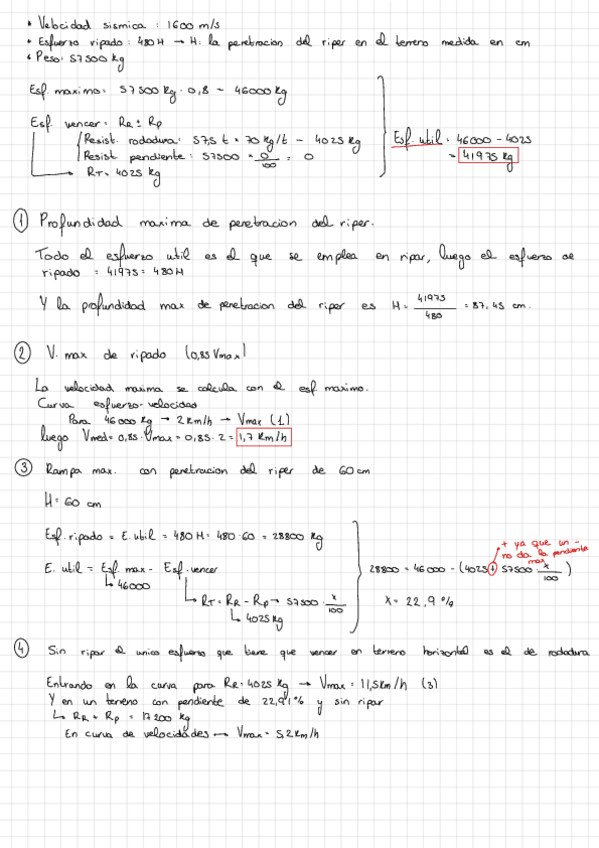 • Velocidad sismica : 1600 m/s
• Esfuerzo ripado : 480 H → H: la penetracion del riper en el terreno medida en cm
• Peso: 57500 Kg
Esf. maximo: 57500 Kg · 0,8 - 46000 Kg
Esf. vencer: RR ± Rp
Resist. rodadura: 57,5 t × 70 Kg/t - 4025 Kg
Resist pendiente : 57500 × 0/100 = 0
→ RT = 4025 Kg
Esf. util = 46000 - 4025
= 41975 Kg
① Profundidad maxima de penetracion del riper.
Todo el esfuerzo util es el que se emplea en ripar, luego el esfuerzo de
ripado = 41975 = 480 H
Y la profundidad max de penetracion del riper es H = 41975/480 = 87,45 cm.
② V. max de ripado (0,85 Vmax)
La velocidad maxima se calcula con el esf. maximo.
Curva esfuerzo-velocidad
Para 46000 Kg → 2 Km/h → Vmax (1)
luego Vmed = 0,85 · Vmax = 0,85 · 2 = 1,7 Km/h
③ Rampa max. con penetracion del riper de 60 cm
H = 60 cm
Esf. ripado = E. util = 480 H = 480 · 60 = 28800 Kg
E. util = Esf. max - Esf. vencer
↳ 46000
↳ RT = RR - Rp → 57500 · x/100
↳ 4025 Kg
+ ya que un -
no da la pendiente
max
28800 = 46000 - (4025 + 57500 · x/100)
x = 22,9 %
④ Sin ripar el unico esfuerzo que tiene que vencer en terreno horizontal es el de rodadura
Entrando en la curva para RR = 4025 Kg → Vmax = 11,5 Km/h (3)
Y en un terreno con pendiente de 22,91% y sin ripar
↳ RR + Rp = 17200 Kg
En curva de velocidades → Vmax = 5,2 Km/h